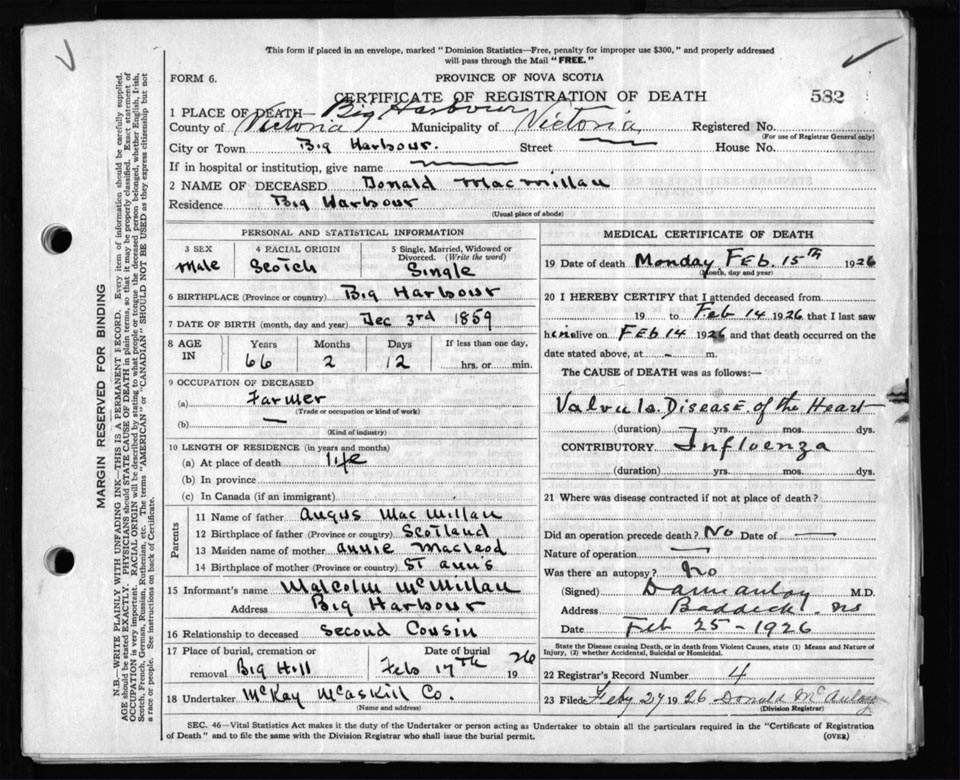 This form if placed in an envelope, marked "Dominion Statistics—Free, penalty for improper use $300," and properly addressed
will pass through the Mail "FREE."
FORM 6.
PROVINCE OF NOVA SCOTIA
CERTIFICATE OF REGISTRATION OF DEATH
582
1 PLACE OF DEATH— Big Harbour
County of Victoria Municipality of Victoria Registered No.
(For use of Registrar General only)
City or Town Big Harbour. Street House No.
If in hospital or institution, give name
2 NAME OF DECEASED Donald MacMillan
Residence Big Harbour
(Usual place of abode)
PERSONAL AND STATISTICAL INFORMATION
3 SEX Male
4 RACIAL ORIGIN Scotch
5 Single, Married, Widowed or Divorced. (Write the word) Single
6 BIRTHPLACE (Province or country) Big Harbour
7 DATE OF BIRTH (month, day and year) Dec 3rd 1859
8 AGE IN Years Months Days If less than one day,
66 2 12 hrs. or min.
9 OCCUPATION OF DECEASED
(a) Farmer
(Trade or occupation or kind of work)
(b) —
(Kind of industry)
10 LENGTH OF RESIDENCE (in years and months)
(a) At place of death life
(b) In province
(c) In Canada (if an immigrant)
Parents
11 Name of father Angus Mac Millan
12 Birthplace of father (Province or country) Scotland
13 Maiden name of mother Annie MacLeod
14 Birthplace of mother (Province or country) St Ann's
15 Informant's name Malcolm McMillan
Address Big Harbour
16 Relationship to deceased Second Cousin
17 Place of burial, cremation or removal Big Hill
Date of burial Feb 17th 1926
18 Undertaker McKay McAskill Co.
(Name and address)
MEDICAL CERTIFICATE OF DEATH
19 Date of death Monday Feb. 15th 1926
(Month, day and year)
20 I HEREBY CERTIFY that I attended deceased from
19 to Feb 14 1926 that I last saw
him alive on Feb 14 1926 and that death occurred on the
date stated above, at - m.
The CAUSE of DEATH was as follows:—
Valvula Disease of the Heart
(duration) yrs. mos. dys.
CONTRIBUTORY Influenza
(duration) yrs. mos. dys.
21 Where was disease contracted if not at place of death?
Did an operation precede death? No Date of —
Nature of operation —
Was there an autopsy? No
(Signed) M.D.
Address Baddeck NS
Date Feb 25-1926
State the Disease causing Death, or in death from Violent Causes, state (1) Means and Nature of
Injury, (2) whether Accidental, Suicidal or Homicidal.
22 Registrar's Record Number 4
23 Filed Feby 27 1926 Donald McAulay
(Division Registrar)
SEC. 46—Vital Statistics Act makes it the duty of the Undertaker or person acting as Undertaker to obtain all the particulars required in the "Certificate of Registration
of Death" and to file the same with the Division Registrar who shall issue the burial permit. (OVER)
MARGIN RESERVED FOR BINDING
N.B.—WRITE PLAINLY WITH UNFADING INK—THIS IS A PERMANENT RECORD. Every item of information should be carefully supplied.
AGE should be stated EXACTLY. PHYSICIANS should STATE CAUSE OF DEATH in plain terms, so that it may be properly classified. Exact statement of
OCCUPATION is very important. RACIAL ORIGIN will be described by stating to what people or tongue the deceased person belonged, whether English, Irish,
Scotch, French, German, Russian, Ruthenian, etc. The terms "AMERICAN" or "CANADIAN" SHOULD NOT BE USED as they express citizenship but not
a race or people. See instructions on back of Certificate.